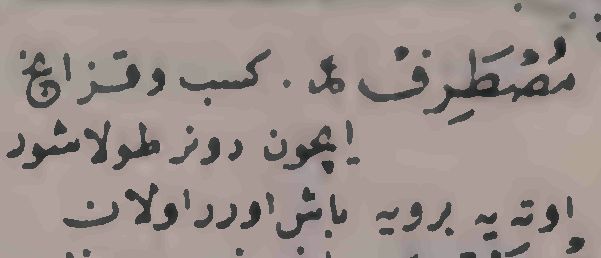 مُصْطَرِف . كسب وقزانج
ايچون دونر طولاشور
اوته يه برويه باش اورر اولان